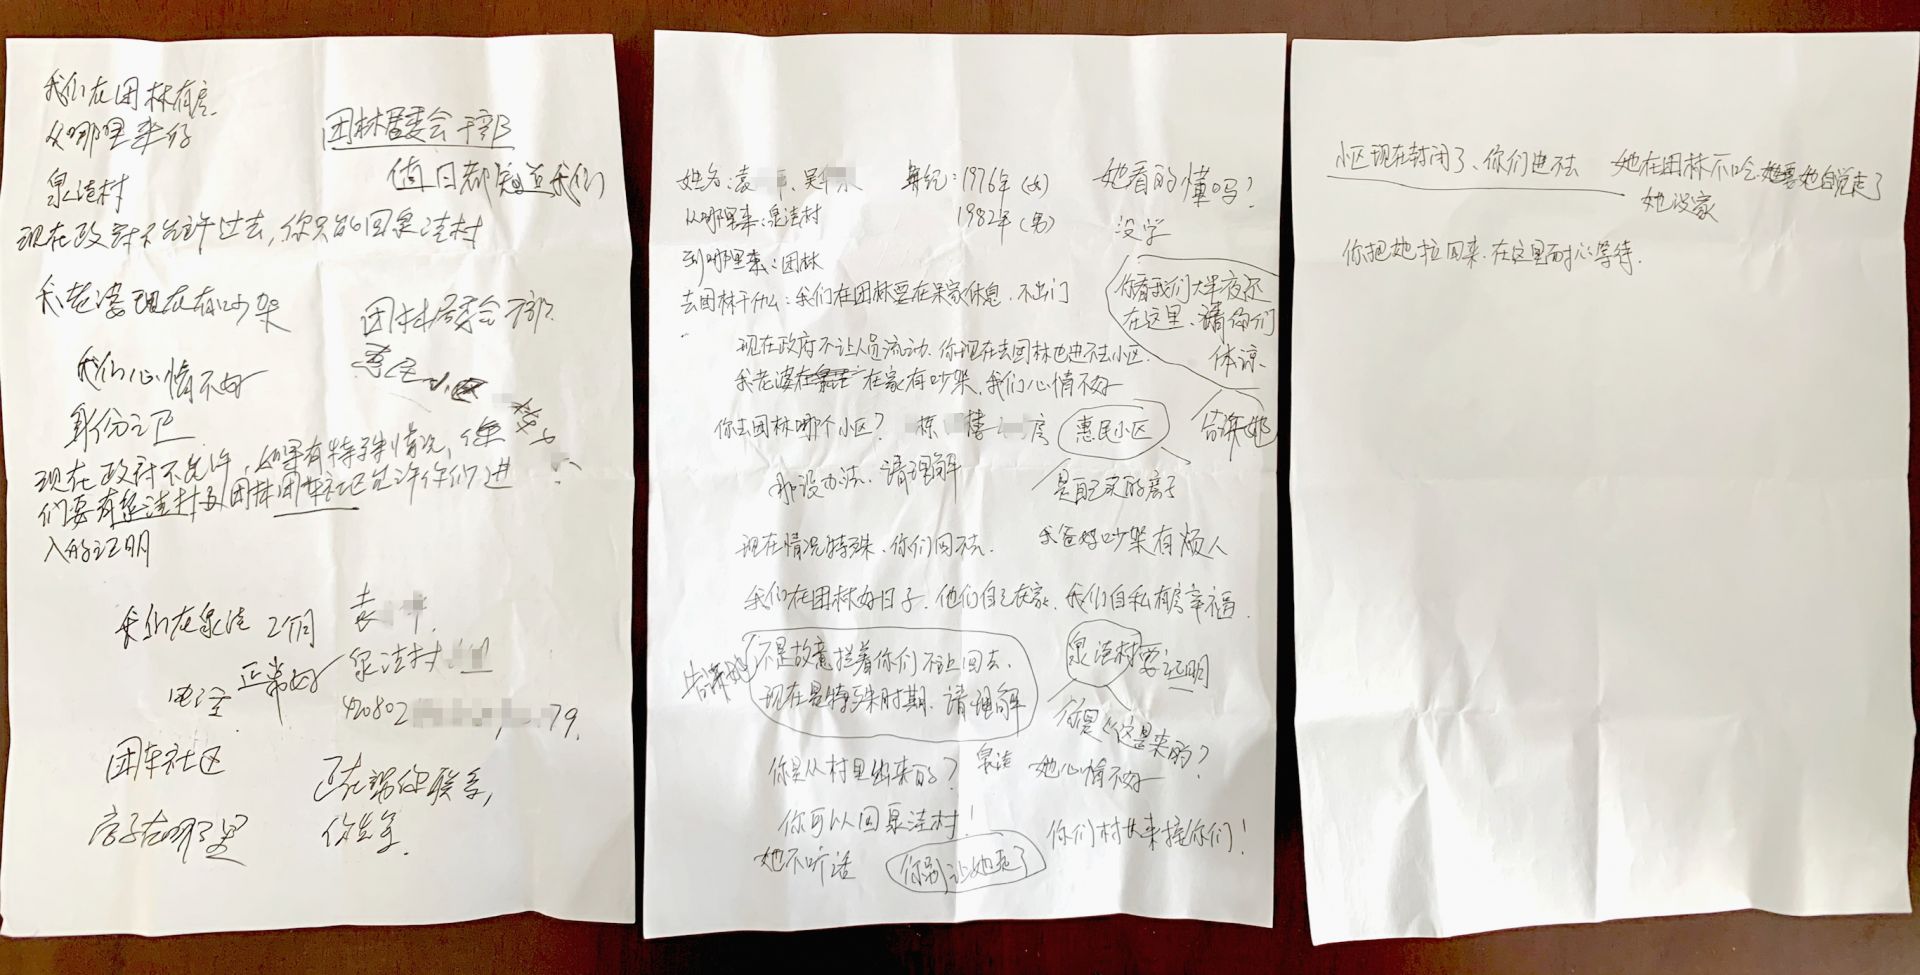 我们在团林有房.
从哪里来的
泉洼村
团林居委会干部
值日都知道我们
现在政府不允许过去,你只能回泉洼村
我老婆现在有吵架
团林居委会干部.
我们心情不好
身份证
现在政府不允许,如果有特殊情况,
们要有泉洼村及团林团林社区允许你们进
入的证明
我们在泉洼 2个月
袁
正常好
泉洼村
电话
420802 79.
团林社区
正在帮你联系,
房子在哪里
你先等.
姓名:袁 、吴
年纪:1976年(女)
她看的懂吗?
从哪里来:泉洼村
1982年(男)
没学
到哪里来:团林
去团林干什么:我们在团林要在呆家休息.不出门
你看我们大半夜还
在这里、请你们
体谅.
现在政府不让人员流动.你现在去团林也进不去小区.
我老婆在 在家有吵架.我们心情不好
你去团林哪个小区? 栋 楼 房
惠民小区
告诉她
那没办法、请理解
是自己买的房子
现在情况特殊、你们回不去.
我爸妈吵架有烦人
我们在团林好日子.他们自己在家.我们自私有房幸福.
告诉她
不是故意拦着你们不让回去.
现在是特殊时期.请理解
泉洼村要证明
你是从这里来的?
你是从村里出来的? 泉洼
她心情不好
你可以回泉洼村!
她不听话
你别让她走了
你们村长来接你们!
小区现在封闭了、你们进不去
她在团林不吃. 她自说走了
她没家
你把她拉回来.在这里耐心等待.